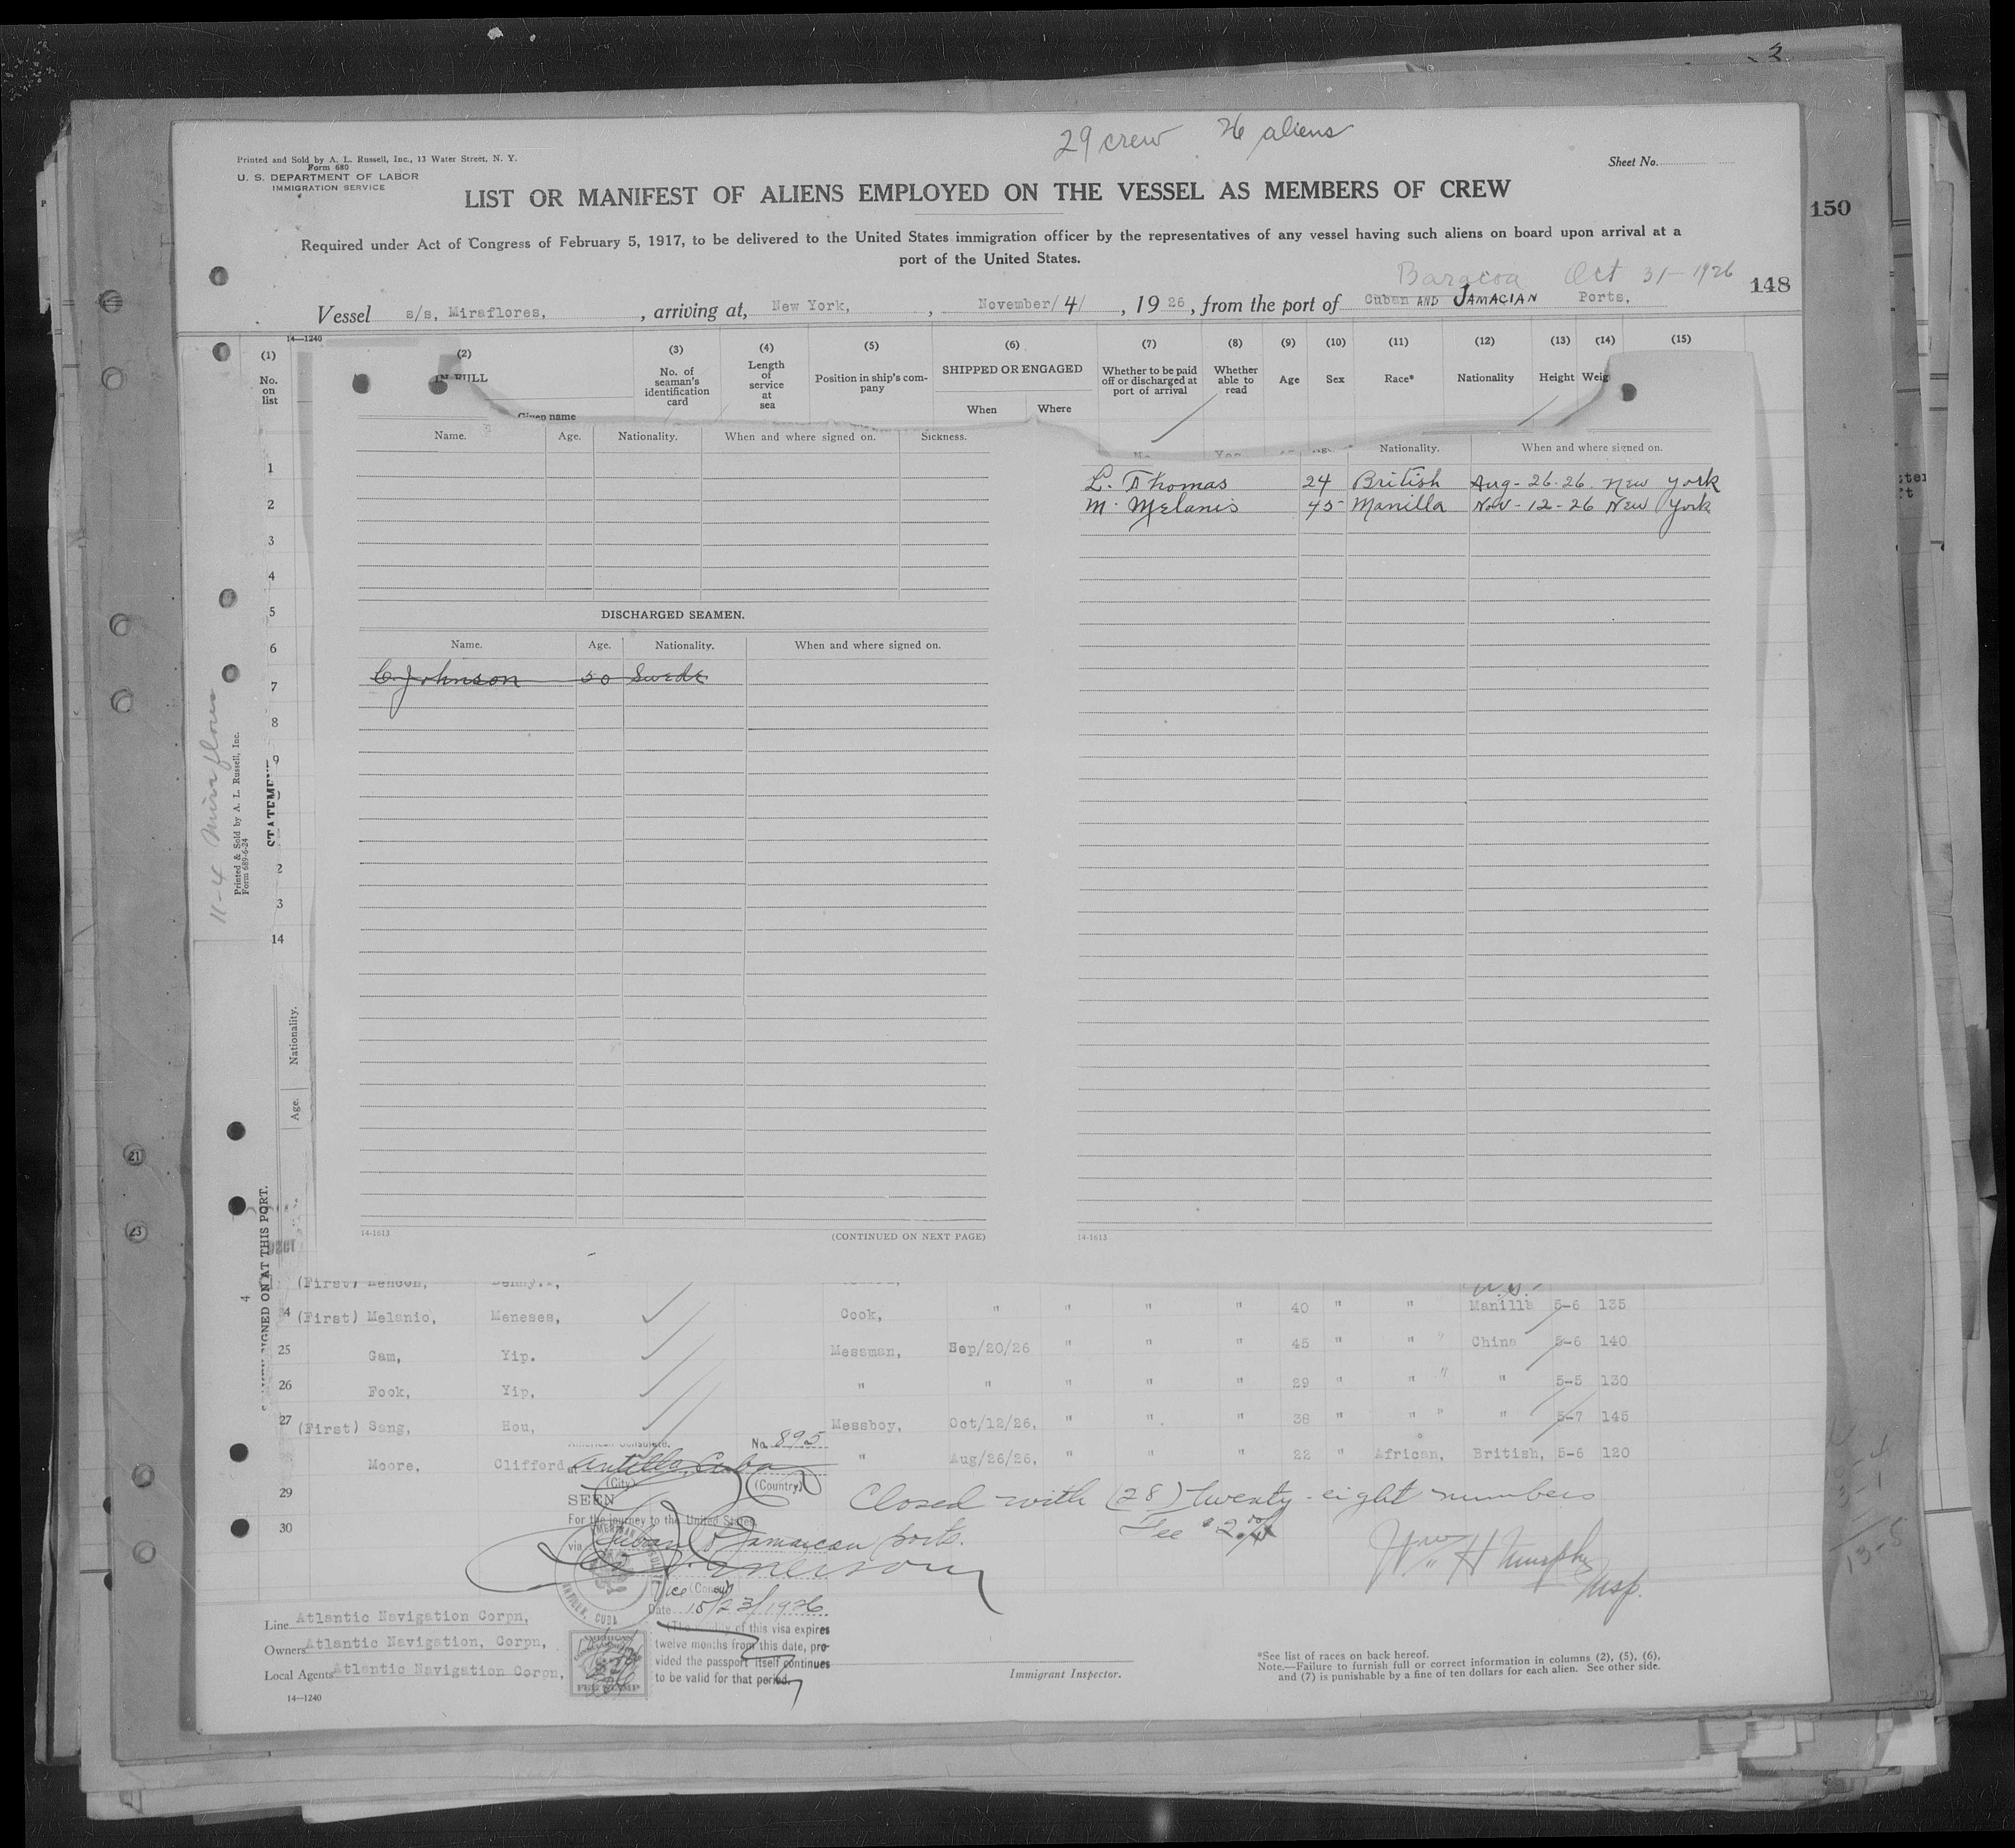 3
29 crew 26 aliens
Printed and Sold by A. L. Russell, Inc., 13 Water Street, N. Y.
Form 680
U. S. DEPARTMENT OF LABOR
IMMIGRATION SERVICE
Sheet No.
LIST OR MANIFEST OF ALIENS EMPLOYED ON THE VESSEL AS MEMBERS OF CREW
150
Required under Act of Congress of February 5, 1917, to be delivered to the United States immigration officer by the representatives of any vessel having such aliens on board upon arrival at a
port of the United States.
Baracoa Oct 31-1926
148
Vessel s/s, Miraflores, , arriving at, New York, , November/4/ , 1926, from the port of Cuban AND JAMACIAN Ports,
14—1240
(1) (2) (3) (4) (5) (6) (7) (8) (9) (10) (11) (12) (13) (14) (15)
No. on list
IN FULL
Given name
No. of seaman's identification card
Length of service at sea
Position in ship's company
SHIPPED OR ENGAGED
When Where
Whether to be paid off or discharged at port of arrival
Whether able to read
Age Sex Race* Nationality Height Weig
Name. Age. Nationality. When and where signed on. Sickness.
Nationality. When and where signed on.
L. Thomas 24 British Aug-26-26. New York
M. Melanis 45 Manilla Nov-12-26 New York
1
2
3
4
5
6
7
8
9
2
3
14
DISCHARGED SEAMEN.
Name. Age. Nationality. When and where signed on.
C. Johnson 50 Swede
11-4 Miraflores
Printed & Sold by A. L. Russell, Inc.
Form 689-6-24
STATEMEN
Nationality.
Age.
SIGNED ON AT THIS PORT.
21
23
14-1613 (CONTINUED ON NEXT PAGE) 14-1613
(First)
4 (First) Melanio, Meneses, Cook, " " " " 40 " " Manilla 5-6 135
25 Gam, Yip. Messman, Sep/20/26 " " " 45 " " " China 5-6 140
26 Fook, Yip, " " " " " 29 " " " " 5-5 130
27 (First) Sang, Hou, Messboy, Oct/12/26, " " " 38 " " " " 5-7 145
Moore, Clifford " Aug/26/26, " " " 22 " African, British, 5-6 120
29
30
American Consulate,
No. 895
at Antilla, Cuba
(City) (Country)
SEEN
For the journey to the United States,
via Cuban & Jamaican ports.
Closed with (28) twenty-eight numbers
Fee $2.00
Wm H Murphy
Insp.
Vice (Consul)
Date 10/23/1926
ANTILLA, CUBA
of this visa expires
twelve months from this date, pro-
vided the passport itself continues
to be valid for that period.
FEE STAMP
Line Atlantic Navigation Corpn,
Owners Atlantic Navigation, Corpn,
Local Agents Atlantic Navigation Corpn,
14—1240
Immigrant Inspector.
*See list of races on back hereof.
Note.—Failure to furnish full or correct information in columns (2), (5), (6),
and (7) is punishable by a fine of ten dollars for each alien. See other side.
13-5